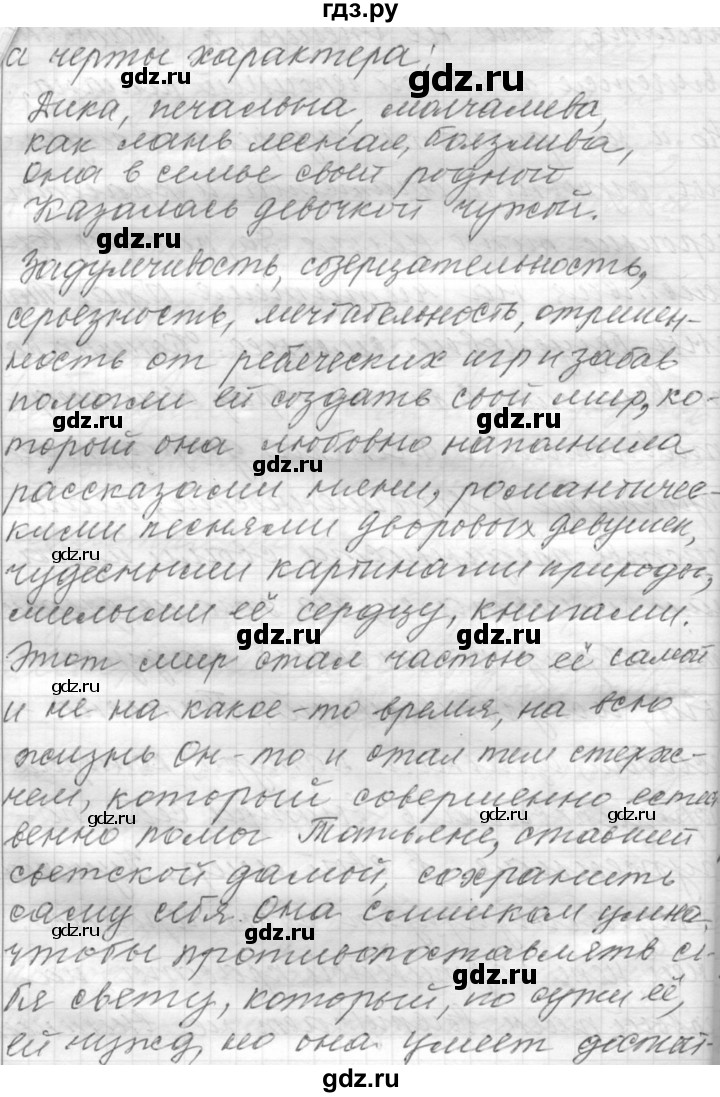 гдз.ру
а черты характера:
gdz.ru
gdz.ru
Дика, печальна, молчалива,
как лань лесная, боязлива,
она в семье своей родной
Казалась девочкой чужой.
gdz.ru
Задумчивость, созерцательность,
серьезность, мечтательность, отрешен-
ность от ребяческих игр и забав
помогли ей создать свой мир, ко-
gdz.ru
gdz.ru
торый она любовно наполнила
gdz.ru
рассказами няни, романтичес-
кими песнями дворовых девушек,
gdz.ru
чудесными картинами природы,
милыми её сердцу, книгами.
gdz.ru
gdz.ru
Этот мир стал частью её самой
gdz.ru
и не на какое-то время, на всю
жизнь Он-то и стал тем стерж-
нем, который совершенно естест
gdz.ru
gdz.ru
gdz.ru
венно помог Татьяне, ставшей
светской дамой, сохранить
саму себя. Она слишком умна,
gdz.ru
gdz.ru
чтобы противопоставлять се-
gdz.ru
бя свету, который, по сути её,
ей чужд, но она умеет достат-
gdz.ru